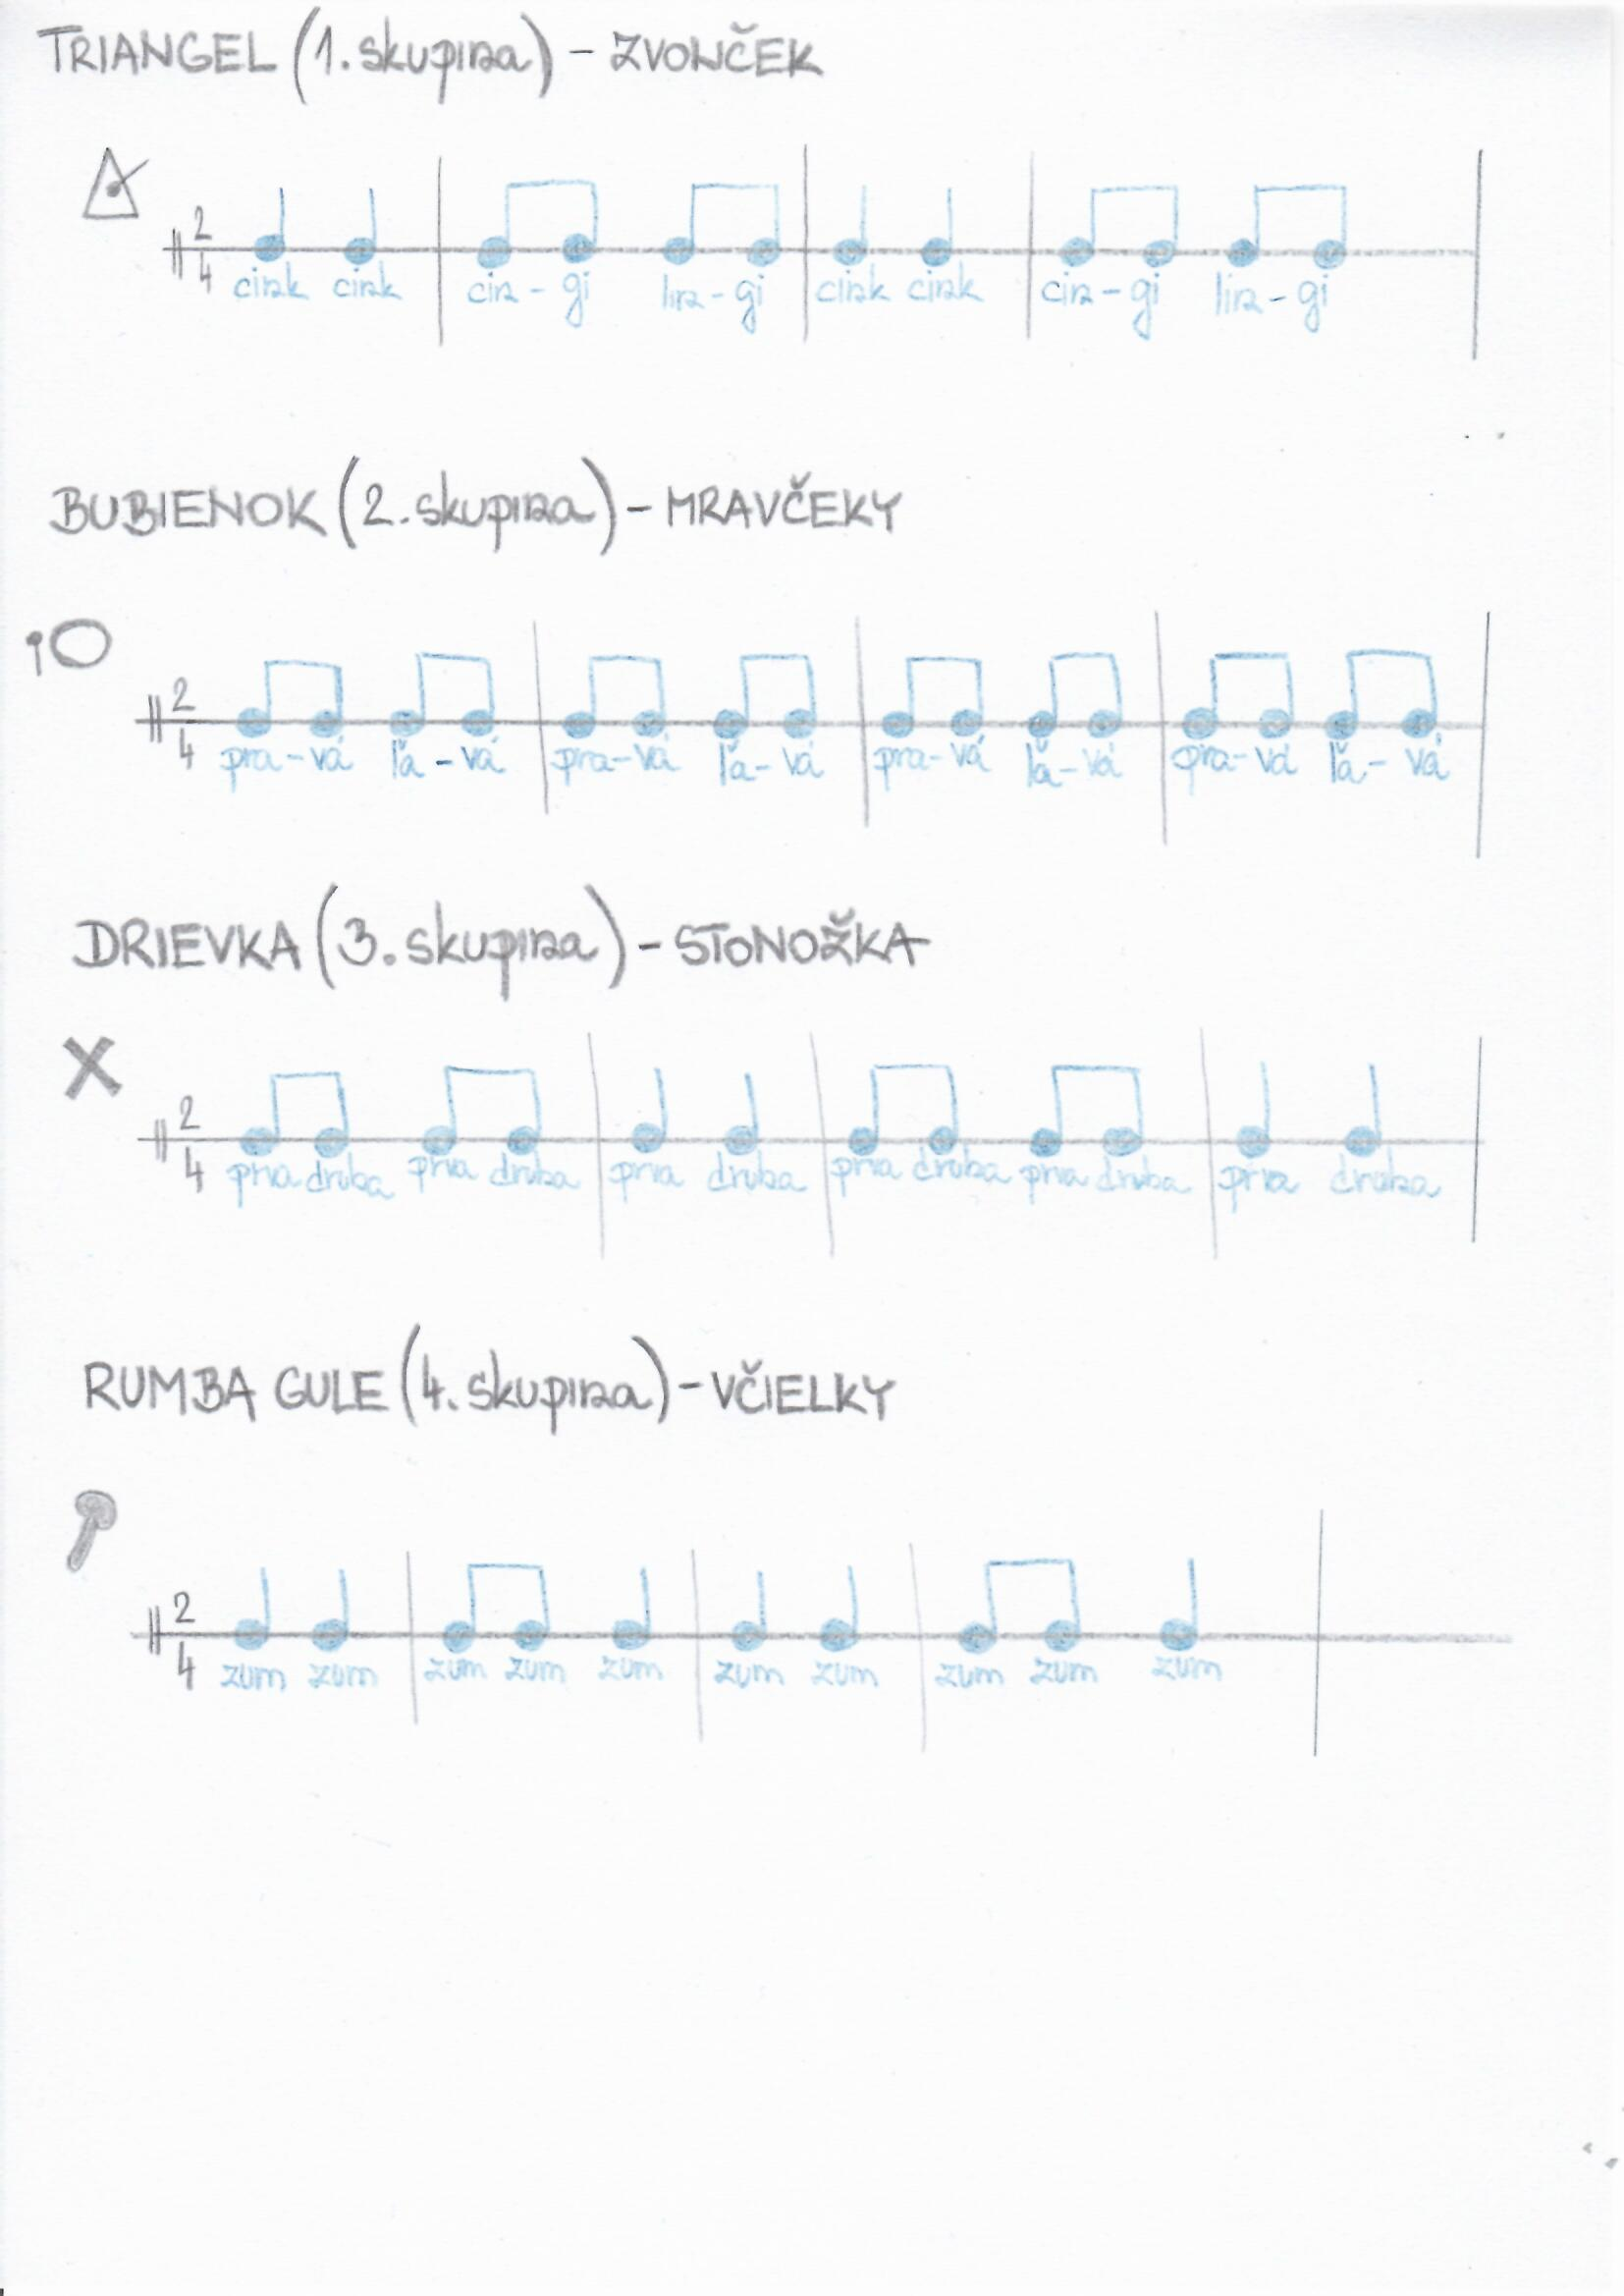 TRIANGEL (1. skupina) - ZVONČEK
2
4
cink cink cin - gi lin - gi cink cink cin - gi lin - gi
BUBIENOK (2. skupina) - MRAVČEKY
2
4
pra - vá ľa - vá pra - vá ľa - vá pra - vá ľa - vá pra - vá ľa - vá
DRIEVKA (3. skupina) - STONOŽKA
2
4
prva druha prva druha prva druha prva druha prva druha prva druha
RUMBA GULE (4. skupina) - VČIELKY
2
4
zum zum zum zum zum zum zum zum zum zum